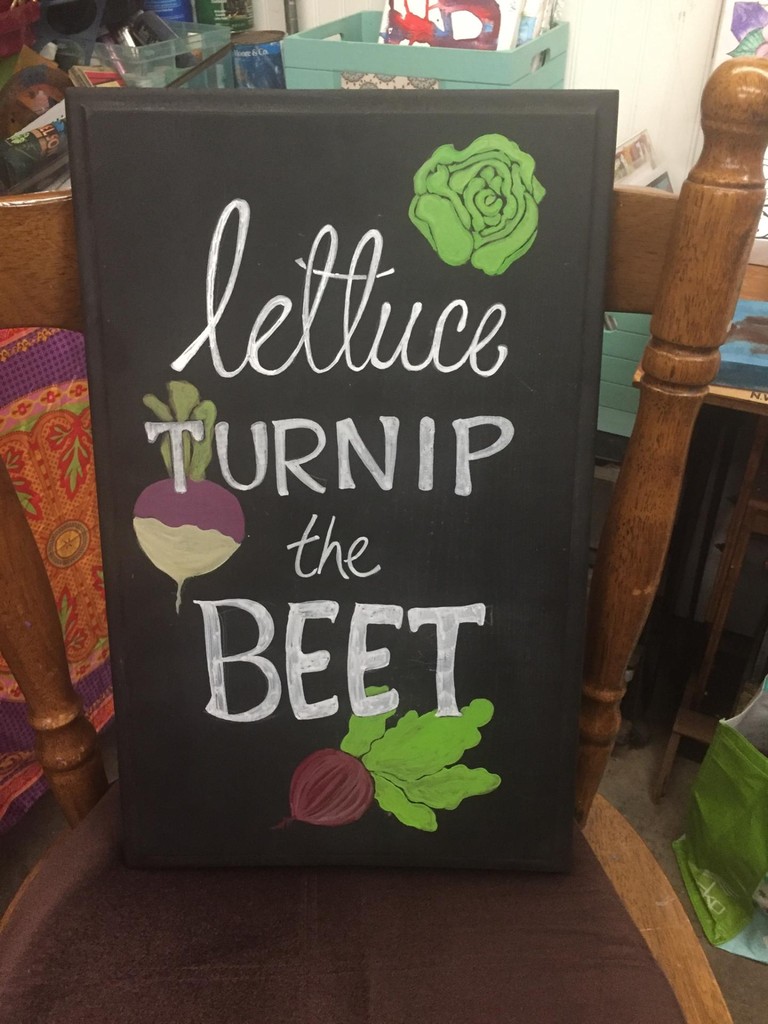 lettuce
TURNIP
the
BEET